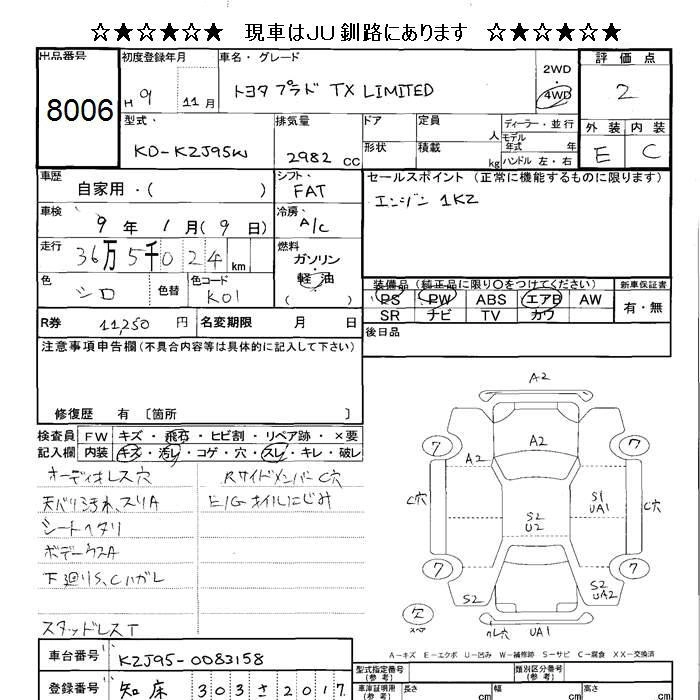 ☆★☆★☆★ 現車はJU釧路にあります ☆★☆★☆★
出品番号
8006
初度登録年月
H 9 11月
車名・グレード
トヨタ プラド TX LIMITED
2WD
・
4WD
評価点
2
型式・
KD-KZJ95W
排気量
2982 cc
ドア
定員
人
ディーラー・並行
モデル
年式 年
形状
積載
kg
ハンドル 左・右
外装 内装
E C
車歴
自家用・( )
シフト・
FAT
セールスポイント (正常に機能するものに限ります)
エンジン 1KZ
車検
9 年 1 月 (9 日)
冷房・
A/C
走行
36万5千024 km
燃料
ガソリン
軽油
( )
色
シロ
色替
色コード
K01
装備品 (純正品に限り○をつけてください)
PS PW ABS エアB AW
SR ナビ TV カワ
新車保証書
有・無
R券 11,250 円
名変期限 月 日
後日品
注意事項申告欄(不具合内容等は具体的に記入して下さい)
修復歴 有 〔箇所 〕
検査員
記入欄
FW キズ・飛石・ヒビ割・リペア跡・×要
内装 キズ・汚レ・コゲ・穴・スレ・キレ・破レ
オーディオレス穴
天バリ汚れ、スリA
シートヘタリ
ボデーウスA
下廻りS、Cハガレ
スタッドレスT
RサイドメンバーC穴
E/Gオイルにじみ
A2
A2
7
A2
7
C穴
S1
UA1
C穴
S2
U2
7
7
S2
S2
UA2
欠
スペア
UA1
A-キズ E-エクボ U-凹み W-補修跡 S-サビ C-腐食 XX-交換済
車台番号 KZJ95-0083158
型式指定番号
(参考)
類別区分番号
(参考)
登録番号 知床 303さ2017
車庫証明用
(参考)
長さ cm
幅 cm
高さ cm